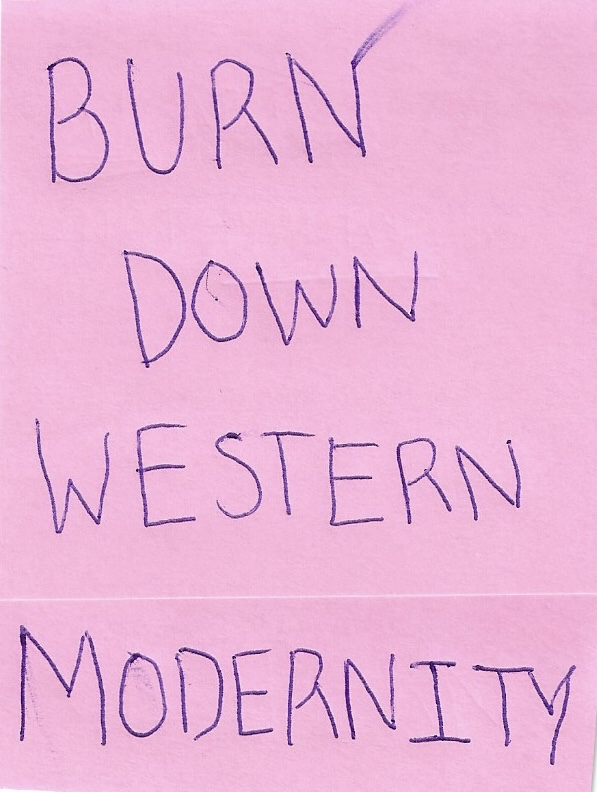 BURN
DOWN
WESTERN
MODERNITY